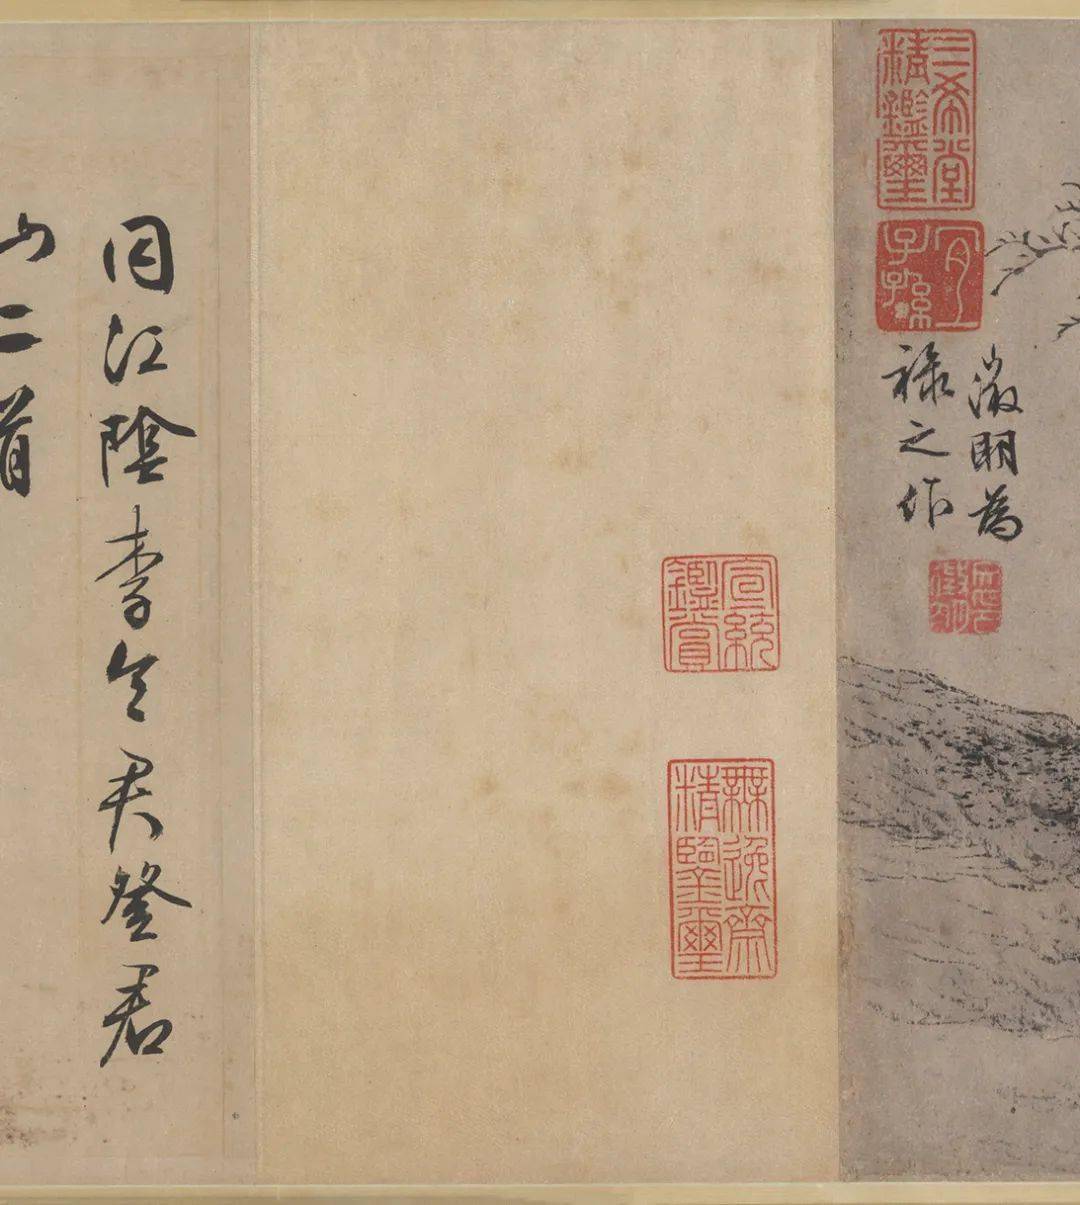 三希堂
精鑑璽
宜
子孫
徵明為
祿之作
宣統
鑑賞
無逸齋
精鑑璽
同江陰李令君登君
山二首